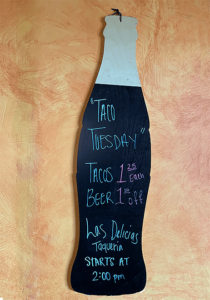 "TACO
TUESDAY"
TACOS 1.25 Each
BEER 1.00 off
Las Delicias
Taqueria
STARTS AT
2:00 pm